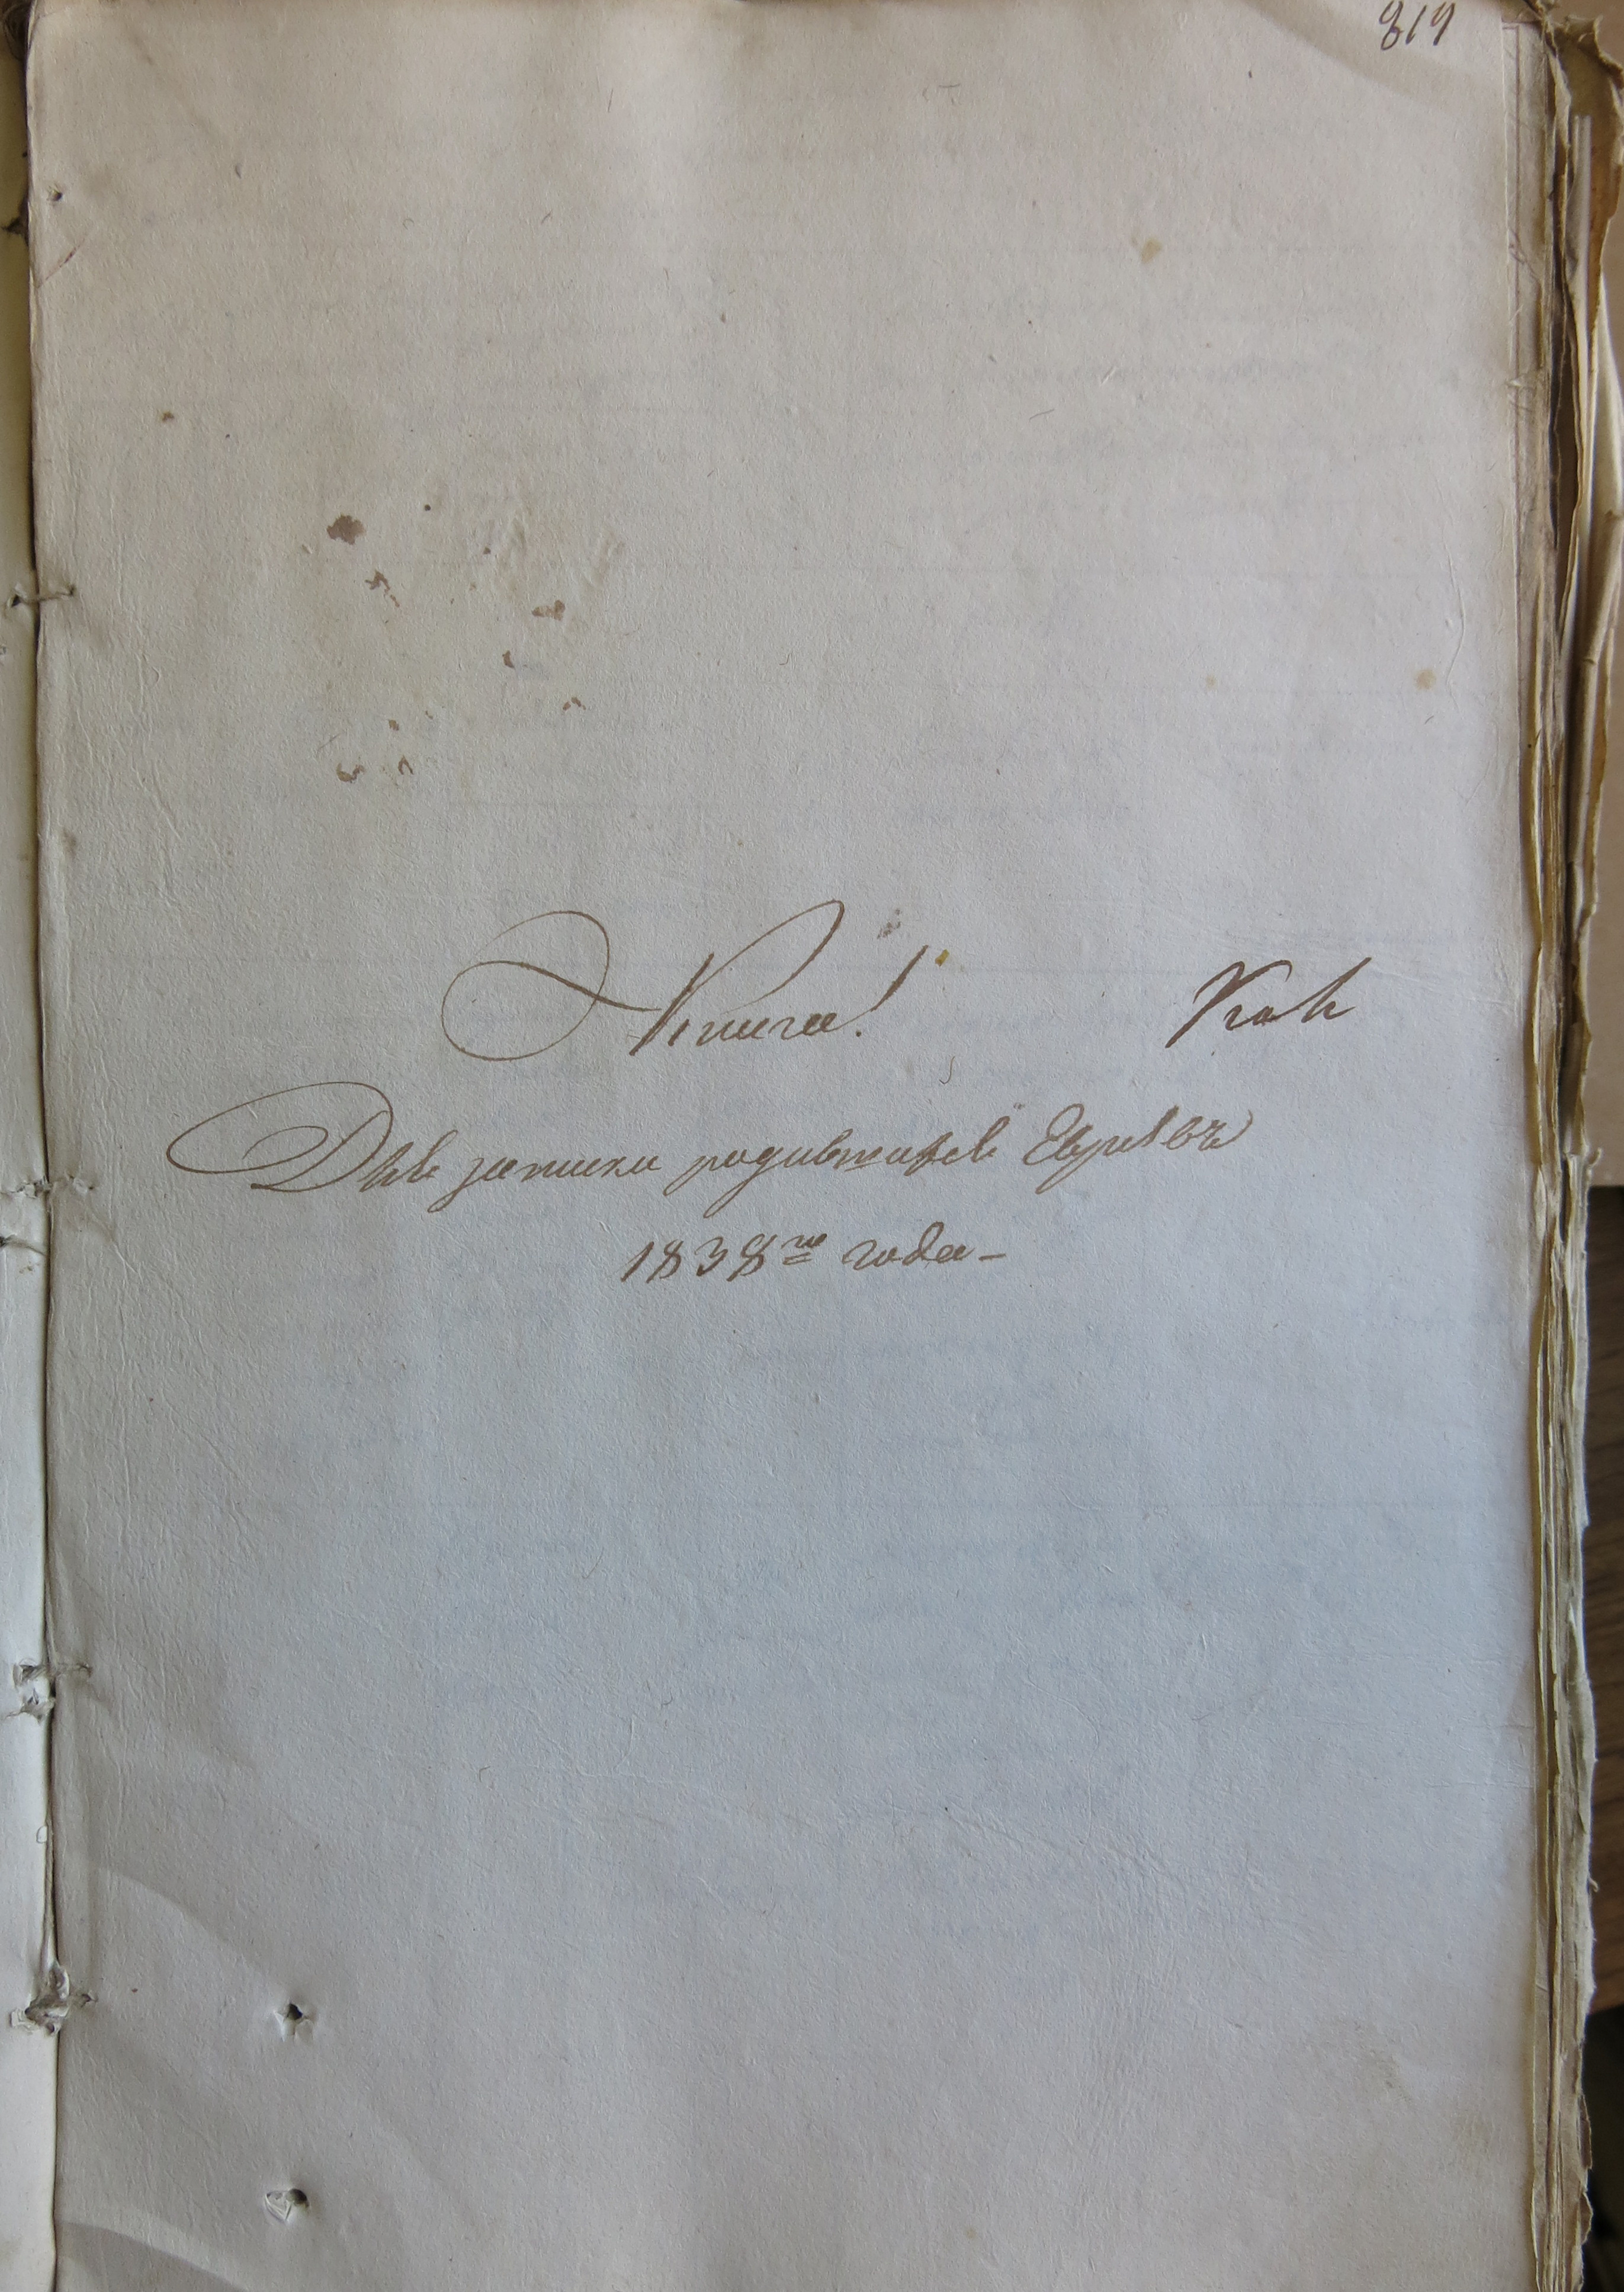 819
Книга!
Для записки родившихся Евреевъ
1838го года –